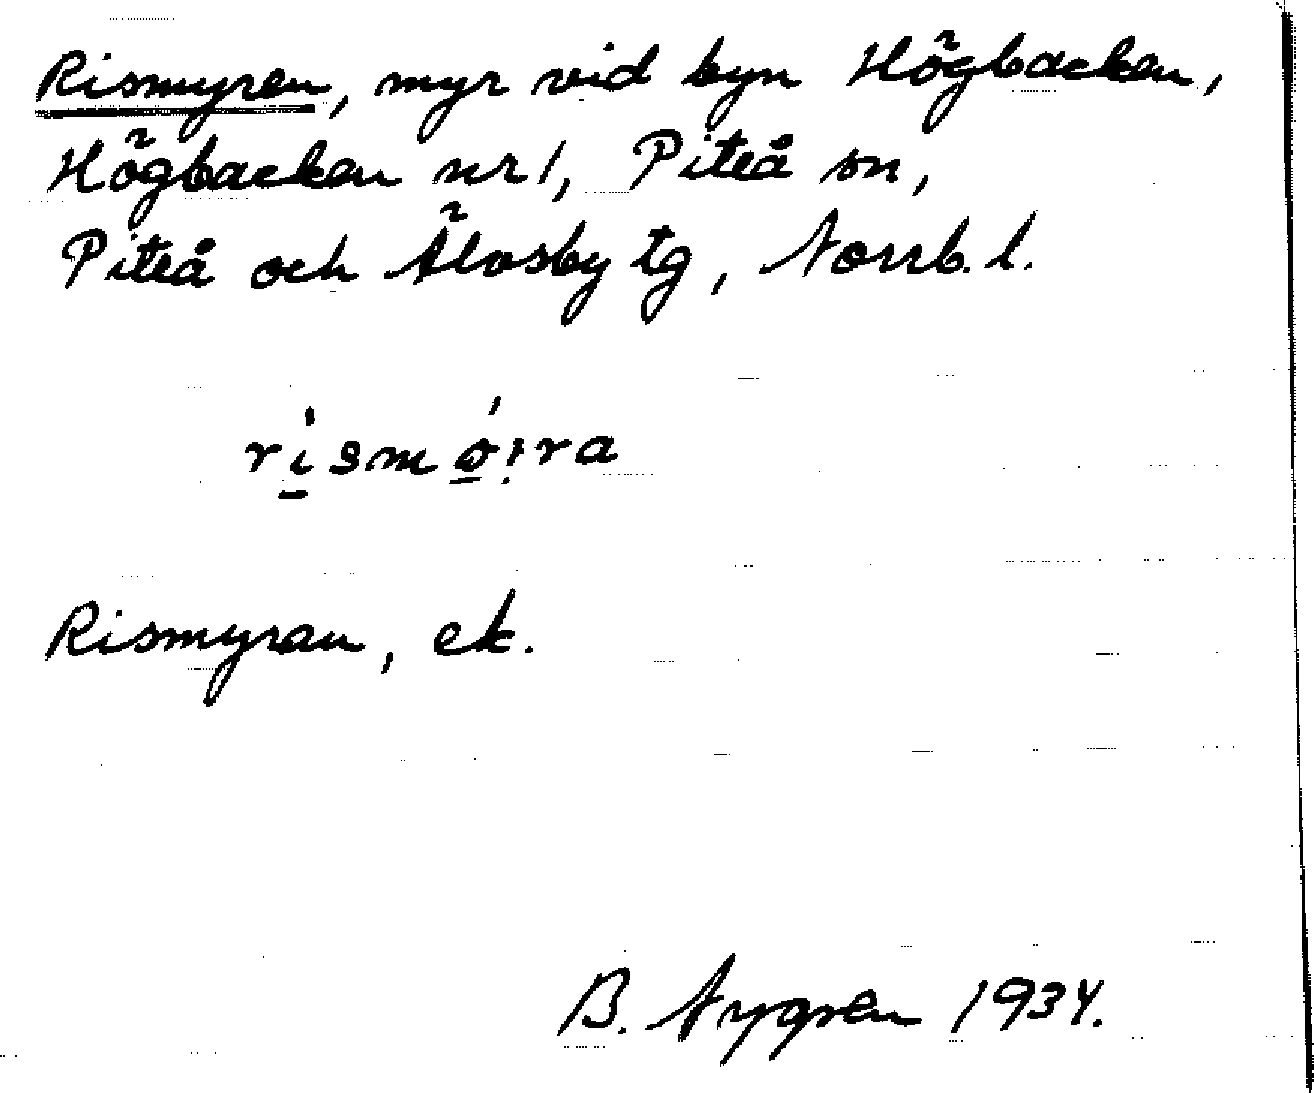 Rismyren, myr vid byn Högbacken,
Högbacken nr 1, Piteå sn,
Piteå och Älvsby tg, Norrb. l.
rismø̀i̯ra
Rismyran, ek.
B. Nygren 1934.